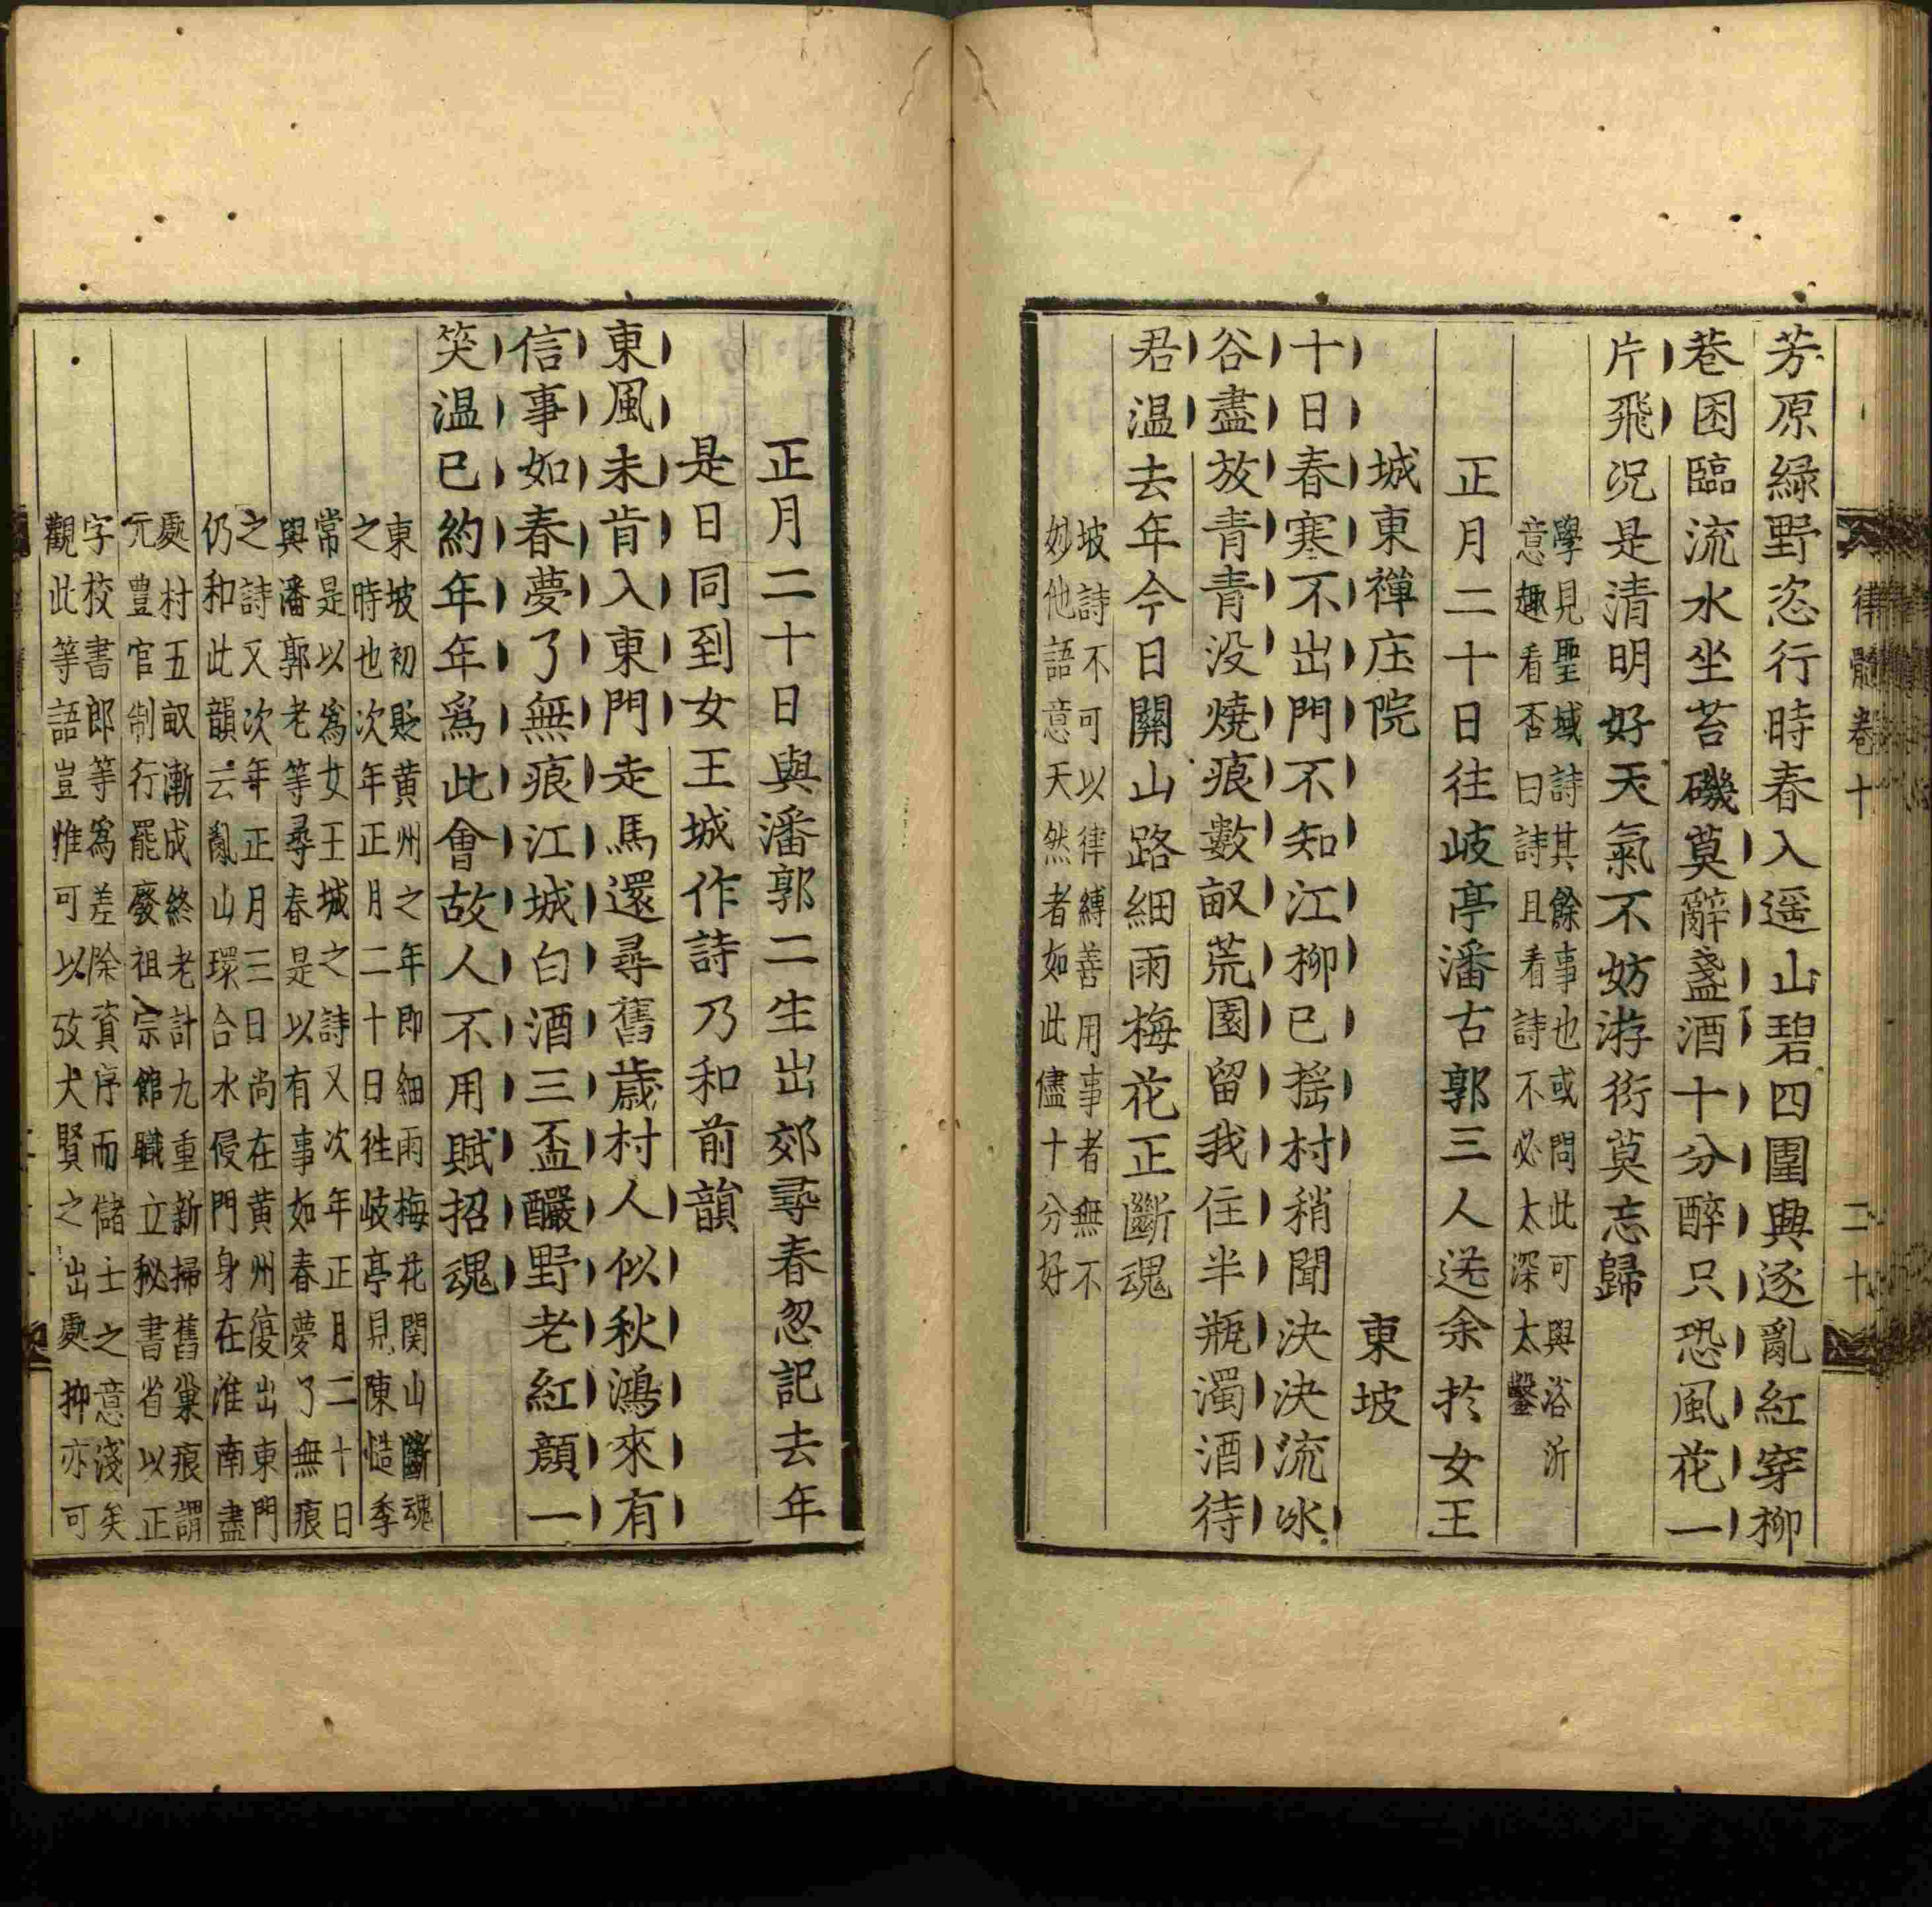 律髓卷十
二十
芳原綠野恣行時春入遥山碧四圍興逐亂紅穿柳
巷困臨流水坐苔磯莫辭盞酒十分醉只恐風花一
片飛况是清明好天氣不妨游衍莫忘歸
學見聖域詩其餘事也或問此可與浴沂
意趣看否曰詩且看詩不必太深太鑿
正月二十日往岐亭潘古郭三人送余扵女王
城東禪庄院
東坡
十日春寒不出門不知江柳已揺村稍聞決決流冰
谷盡放青青没燒痕數畝荒園留我住半瓶濁酒待
君温去年今日關山路細雨梅花正斷魂
坡詩不可以律縛善用事者無不
妙他語意天然者如此儘十分好
正月二十日與潘郭二生出郊尋春忽記去年
是日同到女王城作詩乃和前韻
東風未肯入東門走馬還尋舊歲村人似秋鴻來有
信事如春夢了無痕江城白酒三盃釅野老紅顔一
笑温已約年年爲此會故人不用賦招魂
東坡初貶黄州之年即細雨梅花関山斷魂
之時也次年正月二十日徃岐亭見陳慥季
常是以爲女王城之詩又次年正月二十日
與潘郭老等尋春是以有事如春夢了無痕
之詩又次年正月三日尚在黄州復出東門
仍和此韻云亂山環合水侵門身在淮南盡
處村五畝漸成終老計九重新掃舊巢痕謂
元豊官制行罷廢祖宗館職立秘書省以正
字校書郎等爲差除資序而儲士之意淺矣
觀此等語豈惟可以攷大賢之出處抑亦可